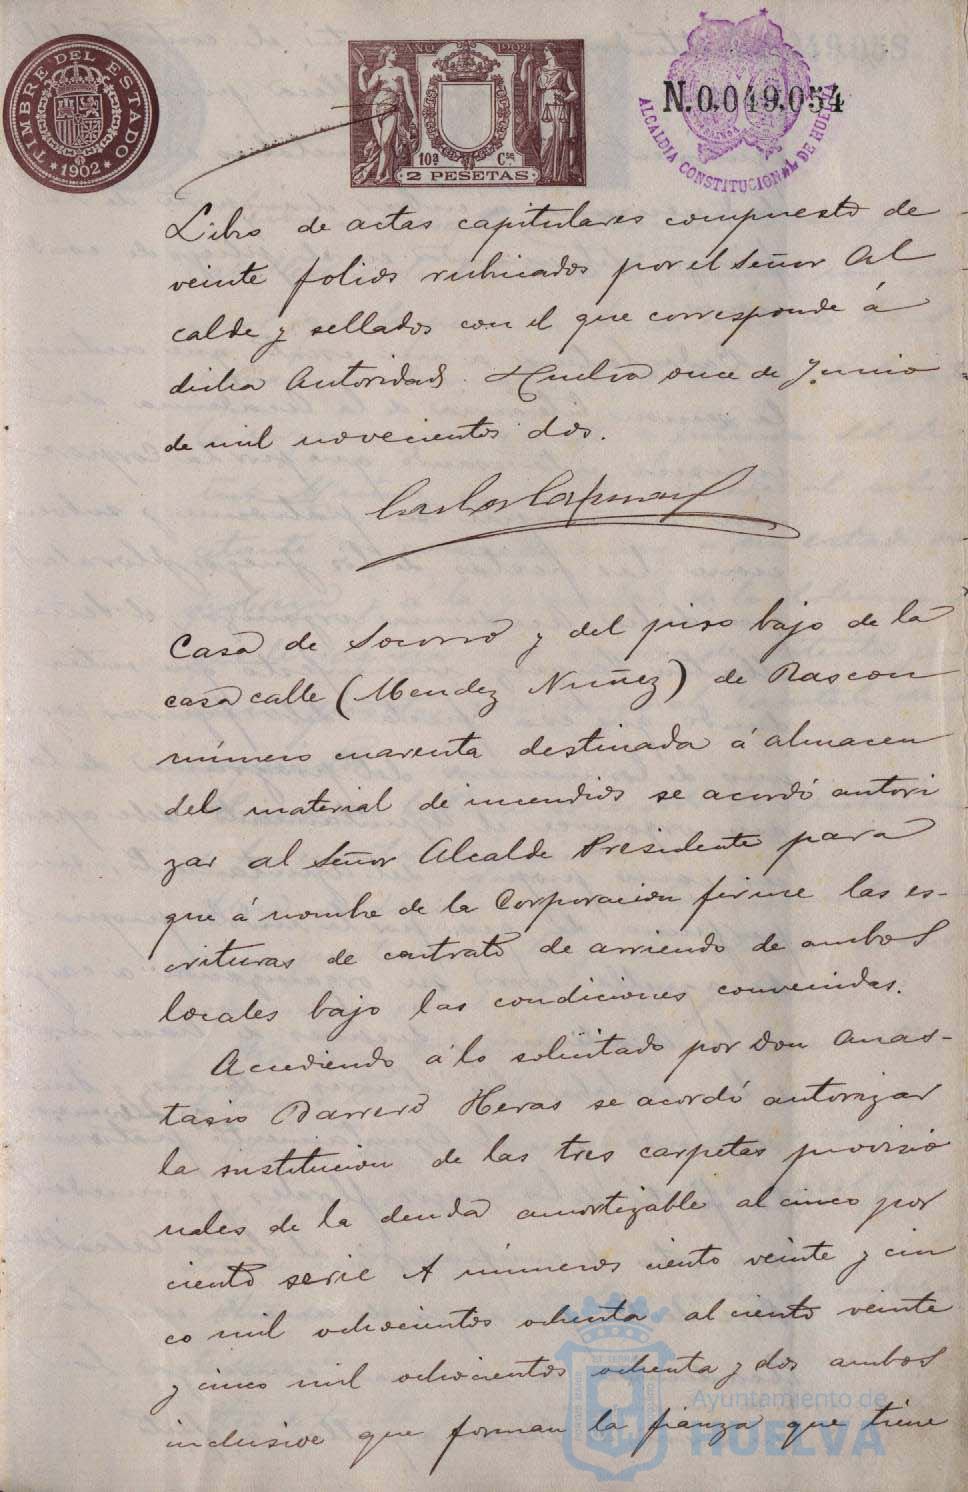 TIMBRE DEL ESTADO
* 1902 *
AÑO 1902
10ª Cse
2 PESETAS
N.0,049,054
ALCALDIA CONSTITUCIONAL DE HUELVA
Libro de actas capitulares compuesto de
veinte folios rubricados por el Señor Al
calde y sellados con el que corresponde á
dicha Autoridad. Huelva once de Junio
de mil novecientos dos.
Casa de Socorro y del piso bajo de la
casa calle (Mendez Nuñez) de Rascon
número cuarenta destinada á almacen
del material de incendios se acordó autori
zar al Señor Alcalde Presidente para
que á nombre de la Corporacion firme las es-
crituras de contrato de arriendo de ambos
locales bajo las condiciones convenidas.
Accediendo á lo solicitado por Don Anas-
tasio Barrero Heras se acordó autorizar
la sustitucion de las tres carpetas provisio
nales de la deuda amortizable al cinco por
ciento serie A números ciento veinte y cin
co mil ochocientos ochenta al ciento veinte
y cinco mil ochocientos ochenta y dos ambos
inclusive que forman la fianza que tiene
Ayuntamiento de
HUELVA